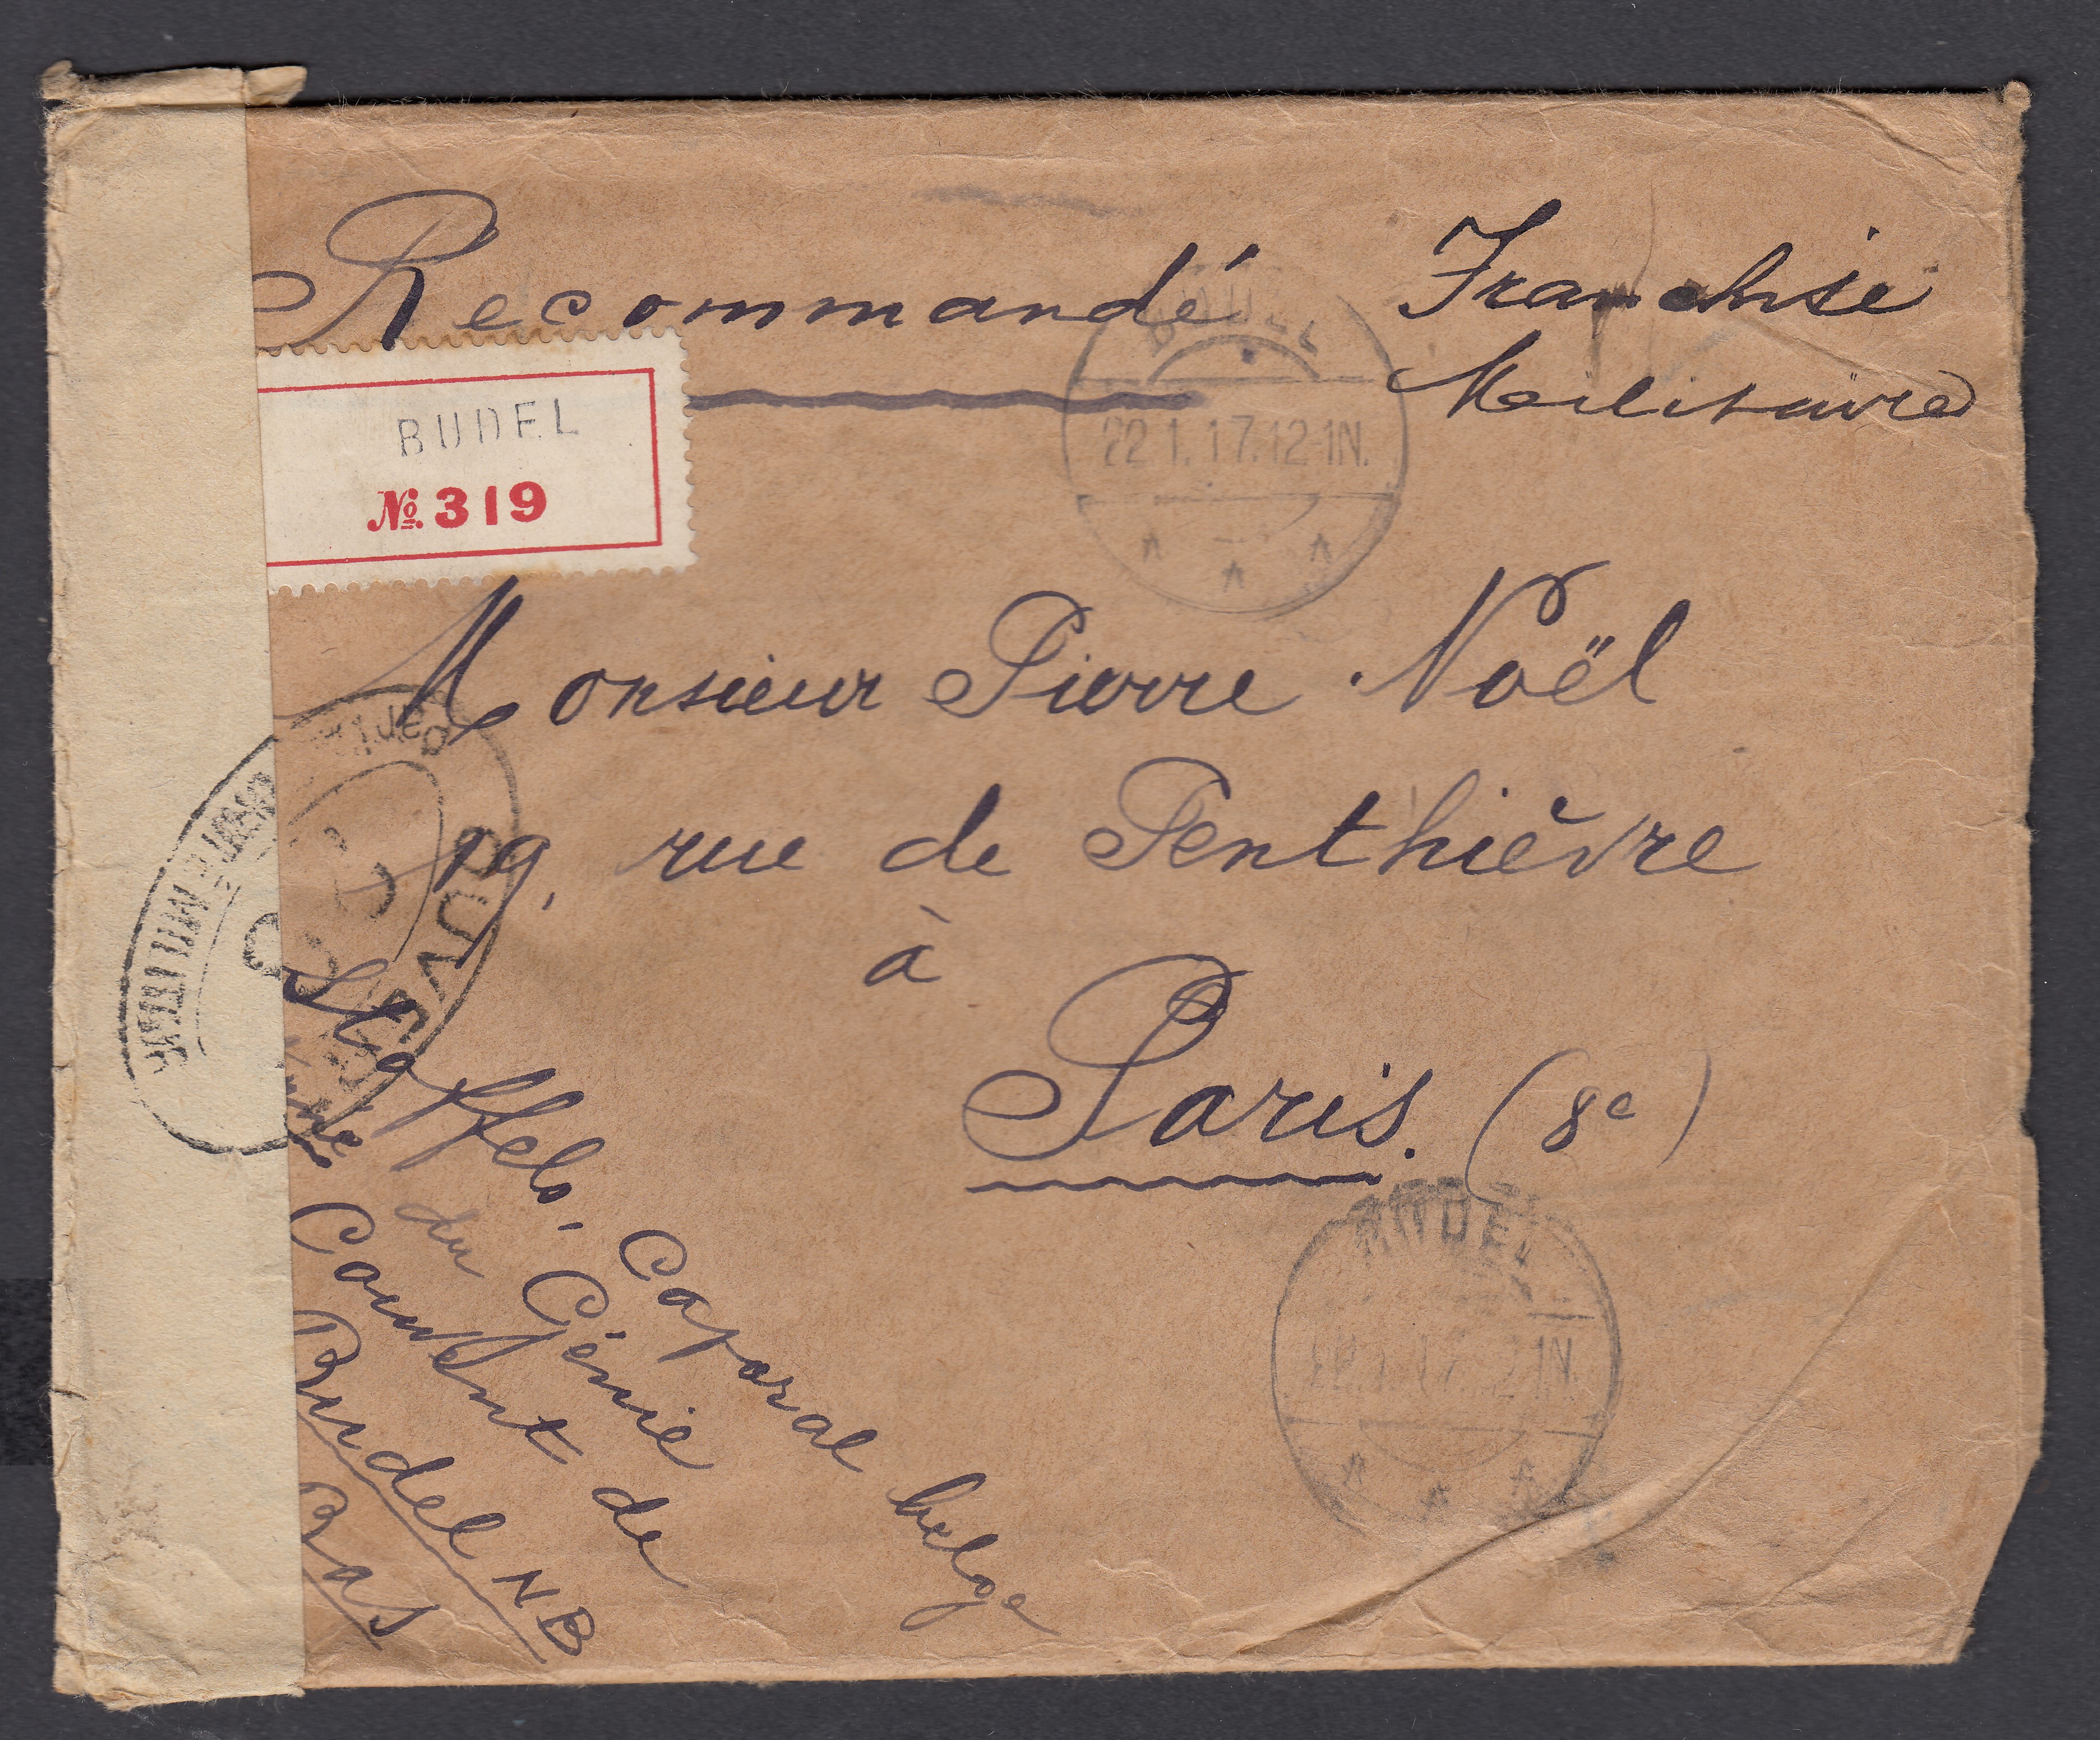 Recommandé
Franchise
Militaire
BUDEL
№ 319
BUDEL
22.1.17.12-1N.
Monsieur Pierre Noël
19, rue de Penthièvre
à
Paris. (8e)
OUVERT
MILITAIRE
Stoffels, Caporal belge
du Génie
Couvent de
Budel NB
Bas
BUDEL
1N.